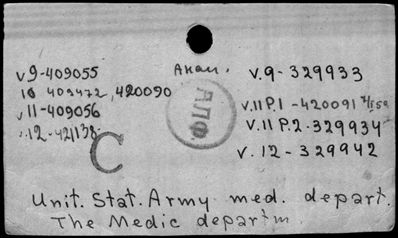 v 9-409055
10 409472, 420090
v 11-409056
v.12-421138
С
Акал.
АЛФ.
v. 9 - 329933
v. 11 P. 1 - 420091
v. 11 P. 2 - 329934
v. 12 - 329942
Unit. Stat. Army med. depart.
The Medic departm.